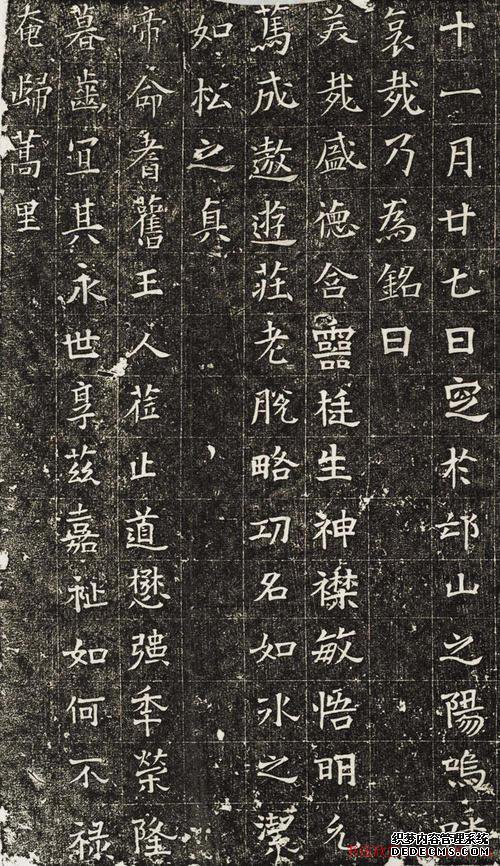 十一月廿七日窆於邙山之陽嗚呼
哀哉乃為銘曰
美哉盛德含靈挺生神襟敏悟明允
篤成遨遊莊老脫略功名如氷之潔
如松之貞
帝命耆舊王人蒞止道懋強年榮隆
暮齒冝其永世享茲嘉祉如何不祿
奄歸蒿里
织梦内容管理系统
DEDECMS.COM